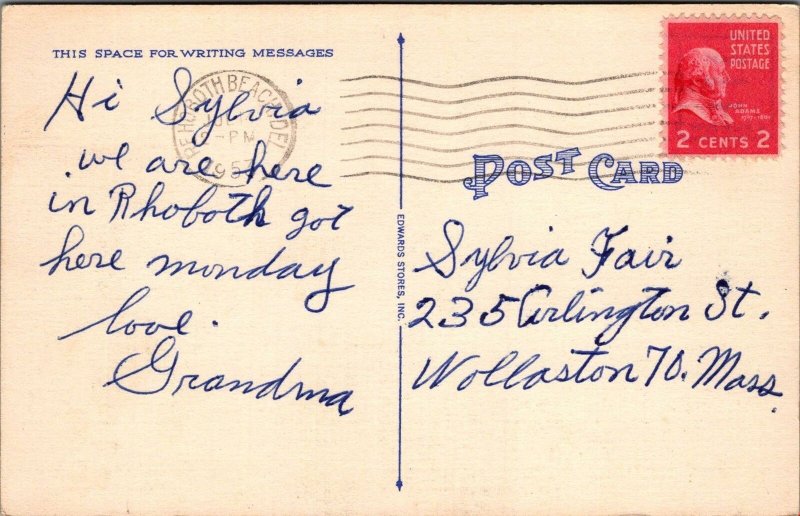 THIS SPACE FOR WRITING MESSAGES
Hi Sylvia
we are here
in Rhoboth got
here monday
love.
Grandma
REHOBOTH BEACH, DEL
PM
1957
EDWARDS STORES, INC.
UNITED
STATES
POSTAGE
JOHN
ADAMS
1797-1801
2 CENTS 2
POST CARD
Sylvia Fair
235 Arlington St.
Wollaston 70. Mass.